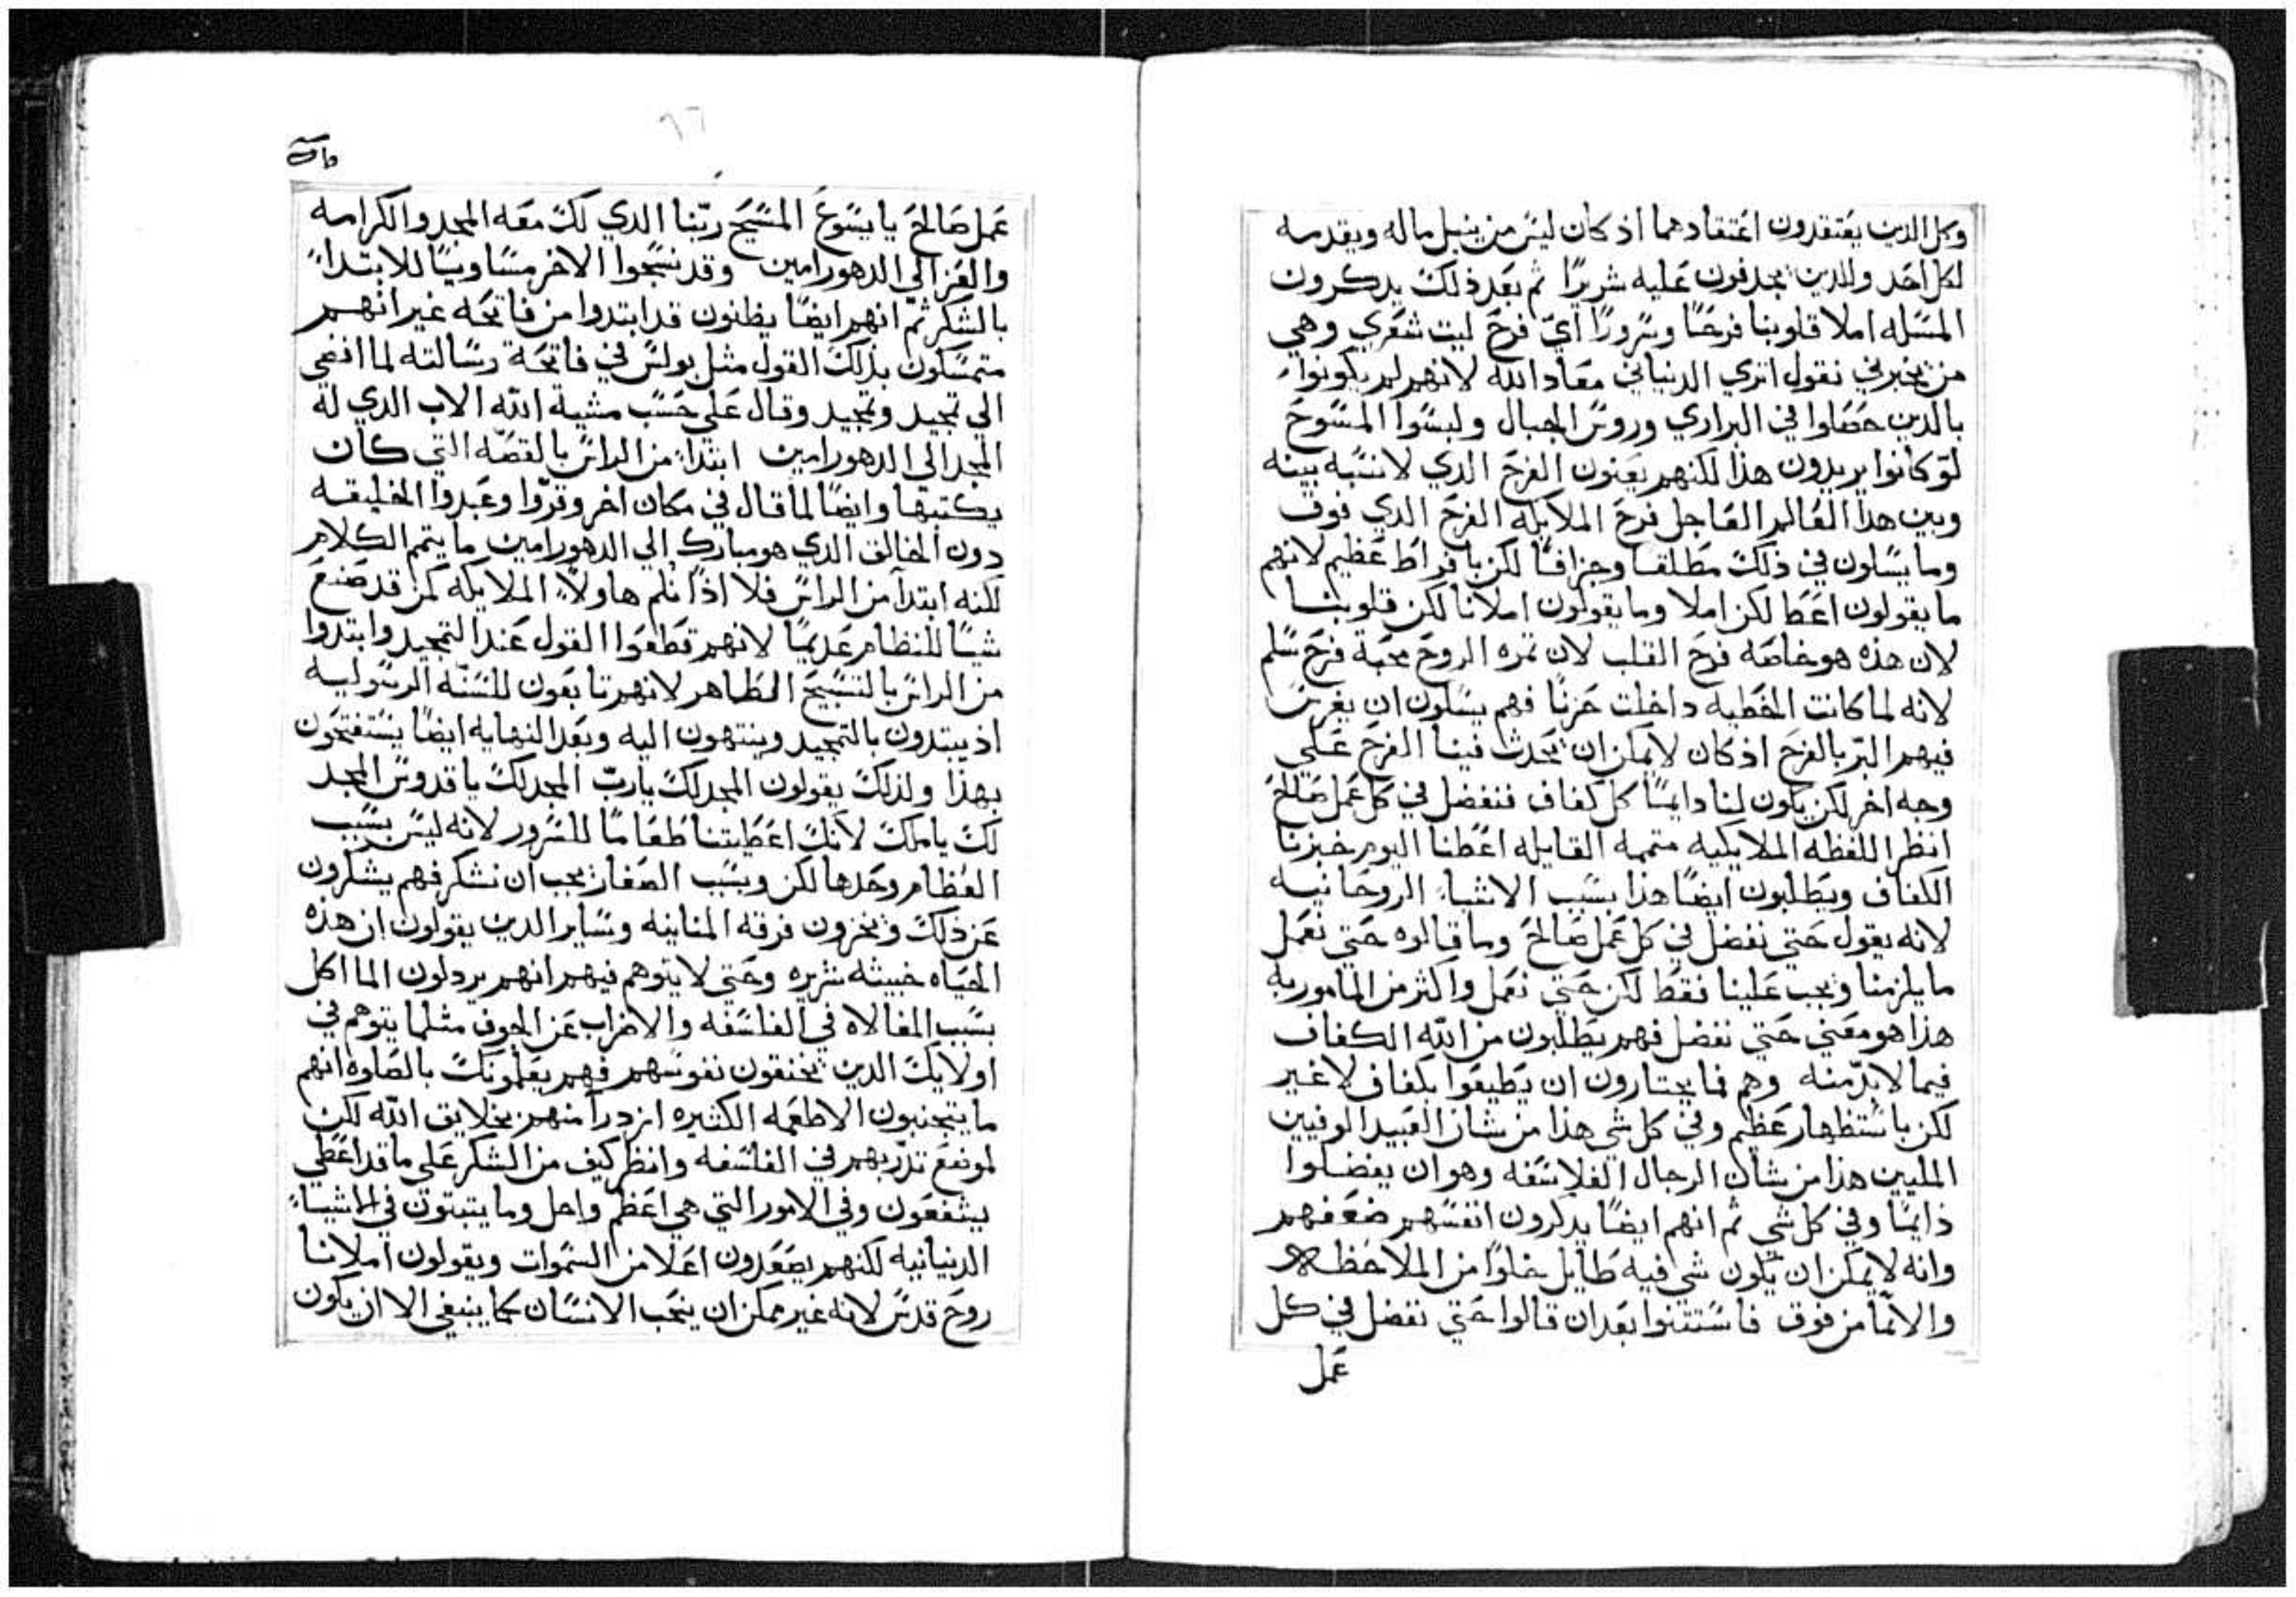 وكل الدين يعتقدون اعتقادهما اذ كان ليس من ينيل ماله ويقدمه
لكل احد والدين يجدفون عليه شريرًا ثم بعد ذلك يدكرون
المسله املا قلوبنا فرحًا وسرورًا اي فرح ليت شعري وهي
من يخبرني نقول اتري الدنياني معاد الله لانهم لم يكونوا
بالدين حصلوا في البراري وروس الجبال ولبسوا المسوح
لو كانوا يريدون هذا لكنهم يعنون الفرح الدي لا نسبه بينه
وبين هدا العالم العاجل فرح الملايكه الفرح الدي فوق
وما يسلون في ذلك مطلقا وجزافًا لكن بافراط عظيم لانهم
ما يقولون اعط لكن املا وما يقولون املانا لكن قلوبنا
لان هذه هو خاصه فرح القلب لان تمره الروح محبة فرح سلم
لانه لما كانت الخطيه داخلت حزنًا فهم يسلون ان يغرس
فيهم البرّ بالفرح اذ كان لا يمكن ان يحدث فينا الفرح علي
وجه اخر لكن يكون لنا دايمًا كل كفاف فنفضل في كل عمل صالح
انظر اللفظه الملايكيه متممه القايله اعطنا اليوم خبزنا
الكفاف ويطلبون ايضًا هذا بسبب الاشياء الروحانيه
لانه يقول حتي نفضل في كل عمل صالح وما قالوه حتي نعمل
ما يلزمنا ويجب علينا فقط لكن حتي نعمل واكثر من المامور به
هذا هو معني حتي نفضل فهم يطلبون من الله الكفاف
فيما لا بدّ منه وهم فما يختارون ان يطيعوا بكفاف لا غير
لكن باستظهار عظم وفي كل شي هذا من شان العبيد الوفيين
المليين هذا من شان الرجال الفلاسفه وهو ان يفضلوا
دايمًا وفي كل شي ثم انهم ايضًا يدكرون انفسهم ضعفهم
وانه لا يمكن ان يكون شي فيه طايل خلوًا من الملاحظه
والا نما من فوق فاستتنوا بعد ان قالوا حتي نفضل في كل
عمل
عمل صالح يا يسوع المسيح ربّنا الدي لك معه المجد والكرامه
والعز الي الدهور امين وقد نسجوا الاخر مساويًا للابتداء
بالشكر ثم انهم ايضًا يظنون قد ابتدوا من فاتحه غير انهم
متمسكون بذلك القول مثل بولس في فاتحة رسالته لما افضي
الي تمجيد وتمجيد وقال علي حسب مشية الله الاب الدي له
المجد الي الدهور امين ابتدا من الراس بالقصّه التي كان
يكتبها وايضًا لما قال في مكان اخر وقرّوا وعبدوا الخليقه
دون الخالق الدي هو مبارك الي الدهور امين ما يتمم الكلام
لكنه ابتدا من الراس فلا اذًا نلم هاولاء الملايكه كمن قد صنع
شيًا للنظام عديمًا لانهم قطعوا القول عند التمجيد وابتدوا
من الراس بالتسبيح الطاهر لانهم تابعون للسنّه الرسوليه
اذ يبتدون بالتمجيد وينتهون اليه وبعد النهايه ايضًا يستفتحون
بهذا ولذلك يقولون المجد لك يا ربّ المجد لك يا قدوس المجد
لك يا ملك لانك اعطيتنا طعامًا للسرور لانه ليس بسبب
العظام وحدها لكن وبسبب الصغار يجب ان نشكر فهم يشكرون
عن ذلك ويخزون فرقه المنانيه وساير الدين يقولون ان هذه
الحياه خبيثه شريره وحتي لا يتوهم فيهم انهم يردلون الماكل
بسبب المغالاه في الفلسفه والاضراب عن الجوف مثلما يتوهم في
اولايك الدين يخنقون نفوسهم فهم يعلمونك بالصلوه انهم
ما يتجنبون الاطعمه الكثيره ازدراً منهم بخلايق الله لكن
لموضع تدرّبهم في الفلسفه وانظر كيف من الشكر علي ما قد اعطي
يشفعون وفي الامور التي هي اعظم واجل وما يتبتون في الاشياء
الدنيانيه لكنهم يصعدون اعلا من السموات ويقولون املانا
روح قدس لانه غير ممكن ان ينجب الانسان كما ينبغي الا ان يكون